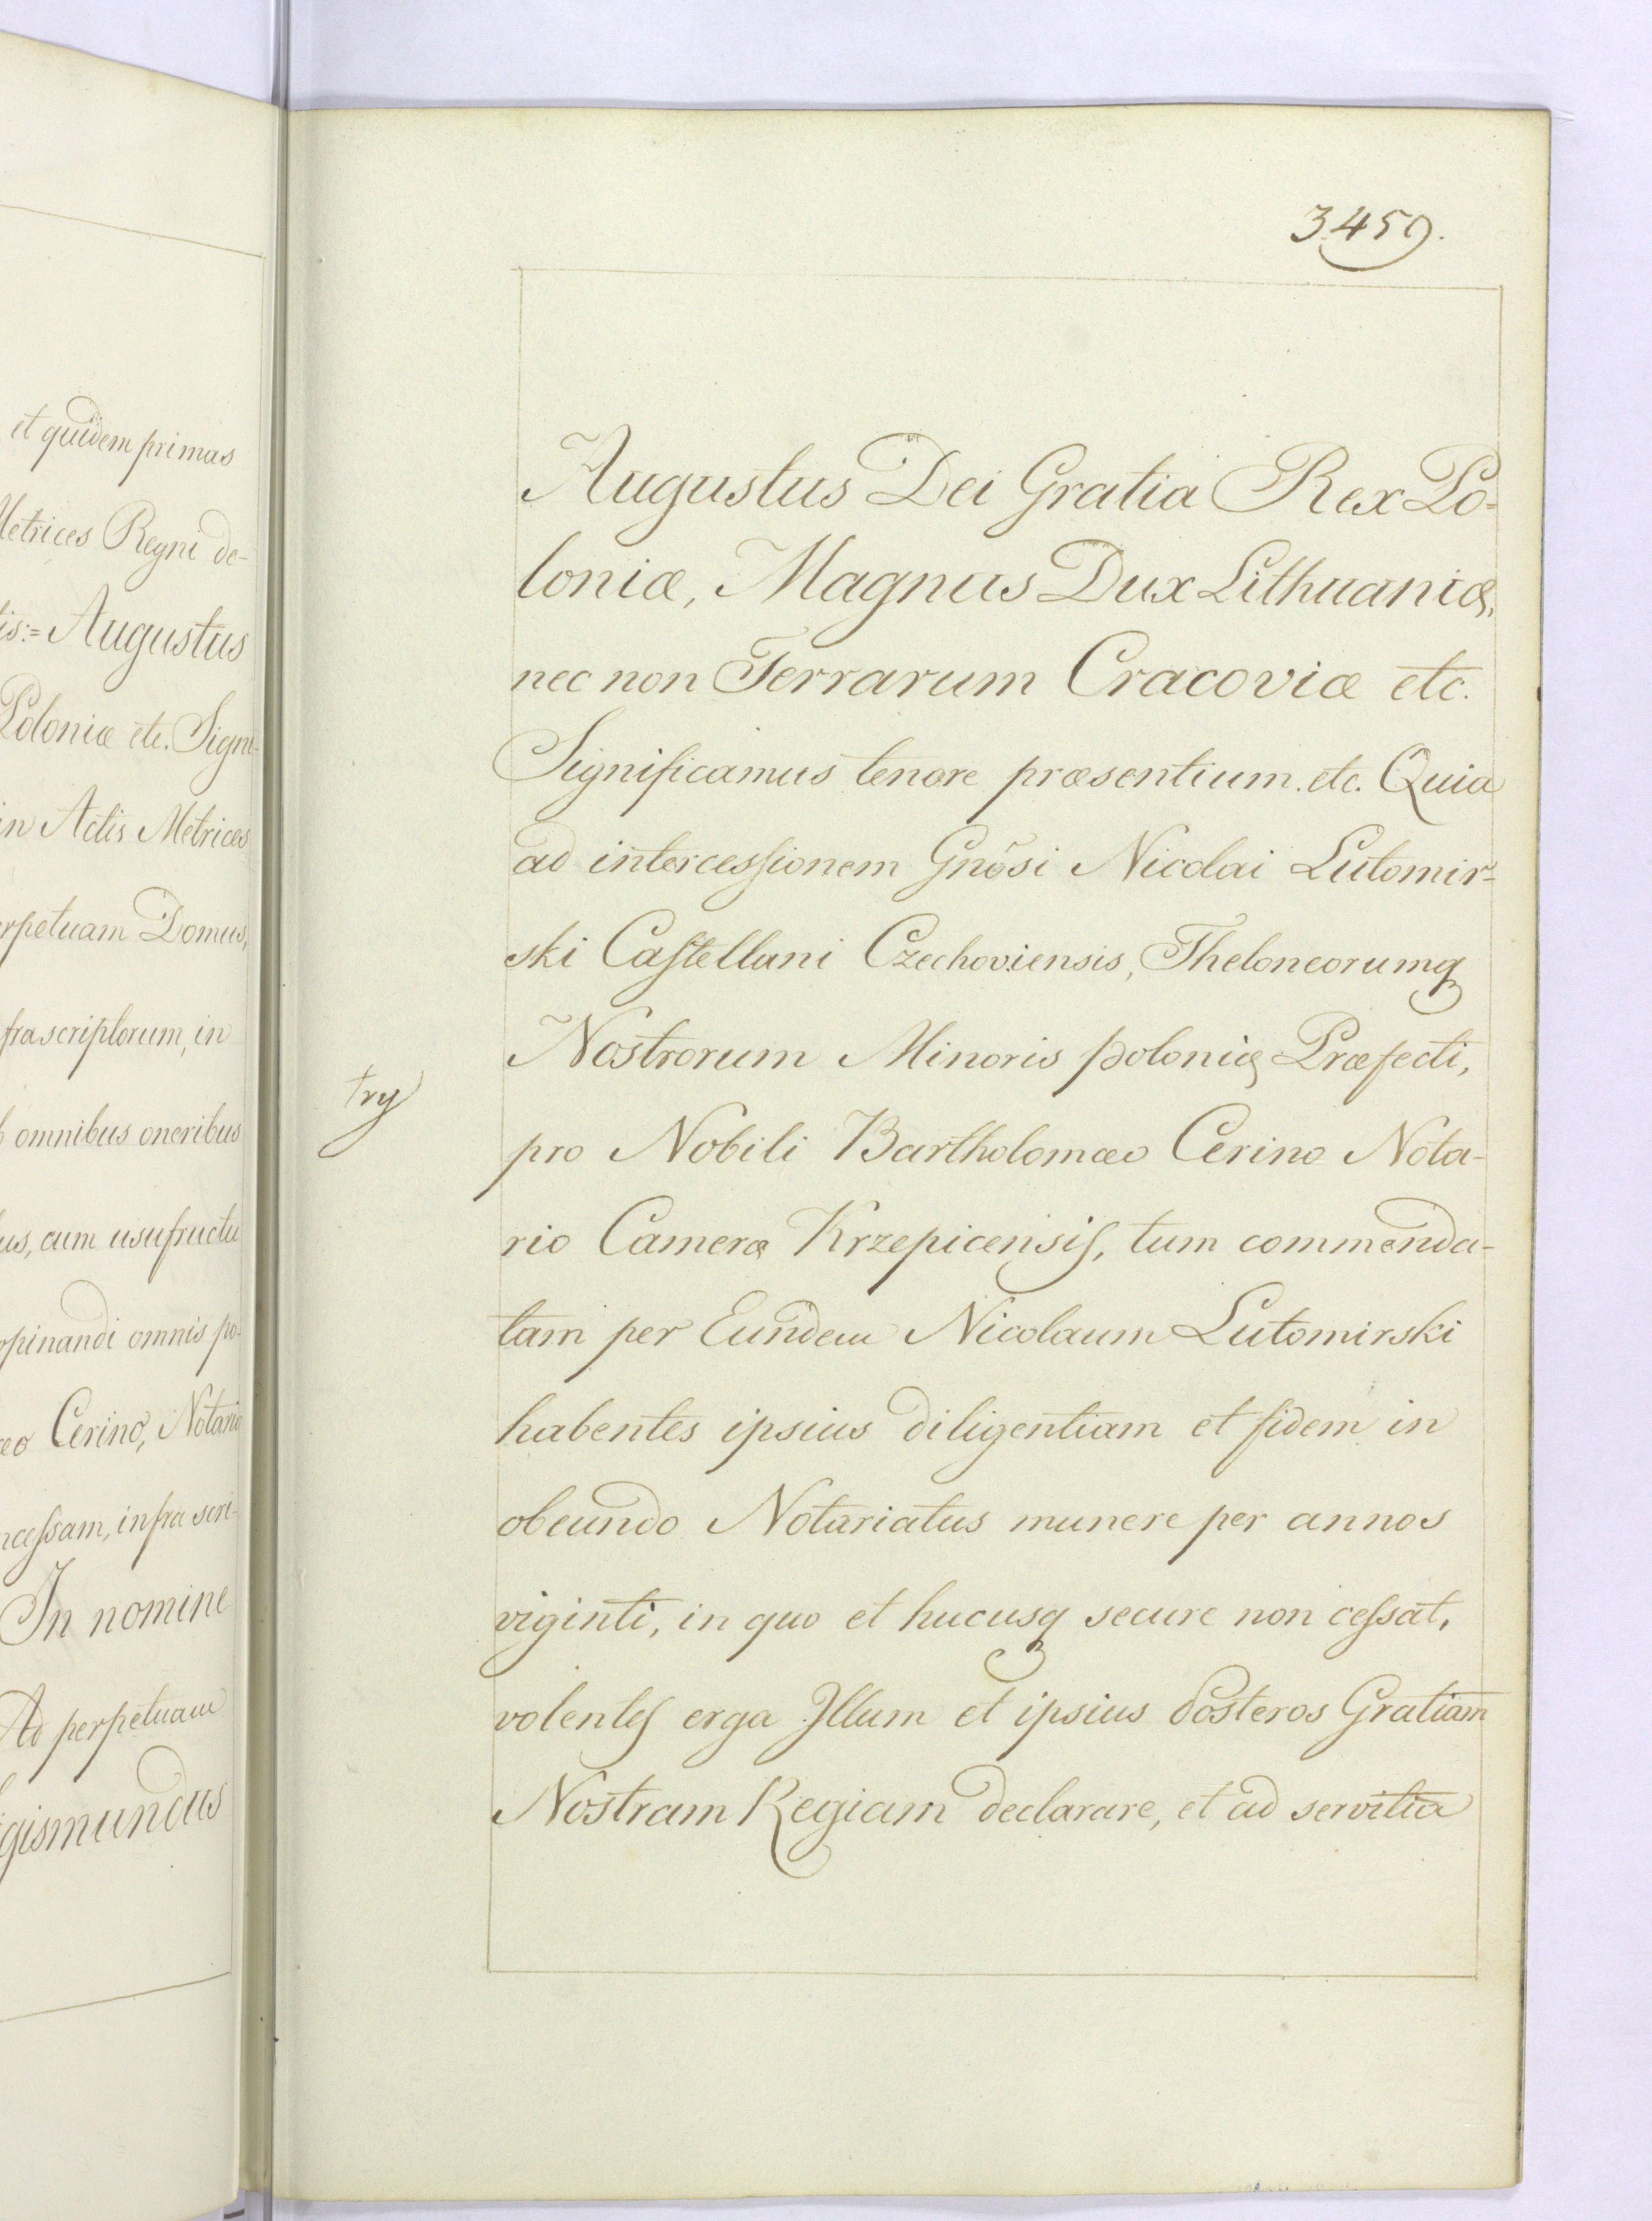 et quidem primas
Metrices Regni de-
is:= Augustus
Poloniæ etc. Signi-
in Actis Metrices
erpetuam Domus,
frascriptorum, in
omnibus oneribus
us, cum usufructu
opinandi omnis po-
æo Cerino, Notario
ncessam, infra scri-
In nomine
Ad perpetuam
igismundus
3459.
Augustus Dei Gratia Rex Po-
loniæ, Magnus Dux Lithuaniæ,
nec non Terrarum Cracoviæ etc.
Significamus tenore præsentium. etc. Quia
ad intercessionem Gnõsi Nicolai Lutomir-
ski Castellani Czechoviensis, Theloneorumq
Nostrorum Minoris poloniæ Præfecti,
try
pro Nobili Bartholomæo Cerino Nota-
rio Cameræ Krzepicensis, tum commenda-
tam per Eundem Nicolaum Lutomirski
habentes ipsius diligentiam et fidem in
obeundo Notariatus munere per annos
viginti, in quo et hucusq secure non cessat,
volentes erga Illum et ipsius posteros Gratiam
Nostram Regiam declarare, et ad servitia